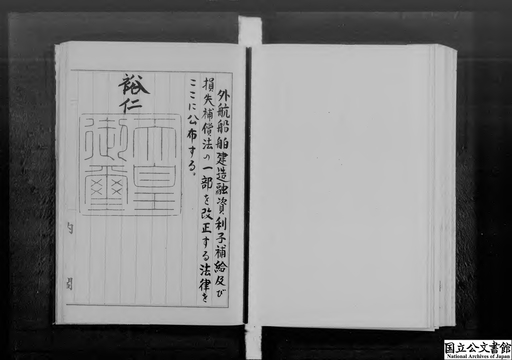 外航船舶建造融資利子補給及び
損失補償法の一部を改正する法律を
ここに公布する。
裕仁
天皇
御璽
国立公文書館
National Archives of Japan